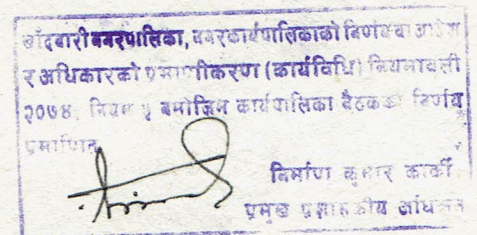 खाँदबारी नगरपालिका, नगरकार्यपालिकाको निर्णय वा आदेश
र अधिकारको प्रमाणीकरण (कार्यविधि) नियमावली
२०७४, नियम ५ बमोजिम कार्यपालिका बैठकका निर्णय
प्रमाणित
निर्माण कुमार कार्की
प्रमुख प्रशासकीय अधिकृत